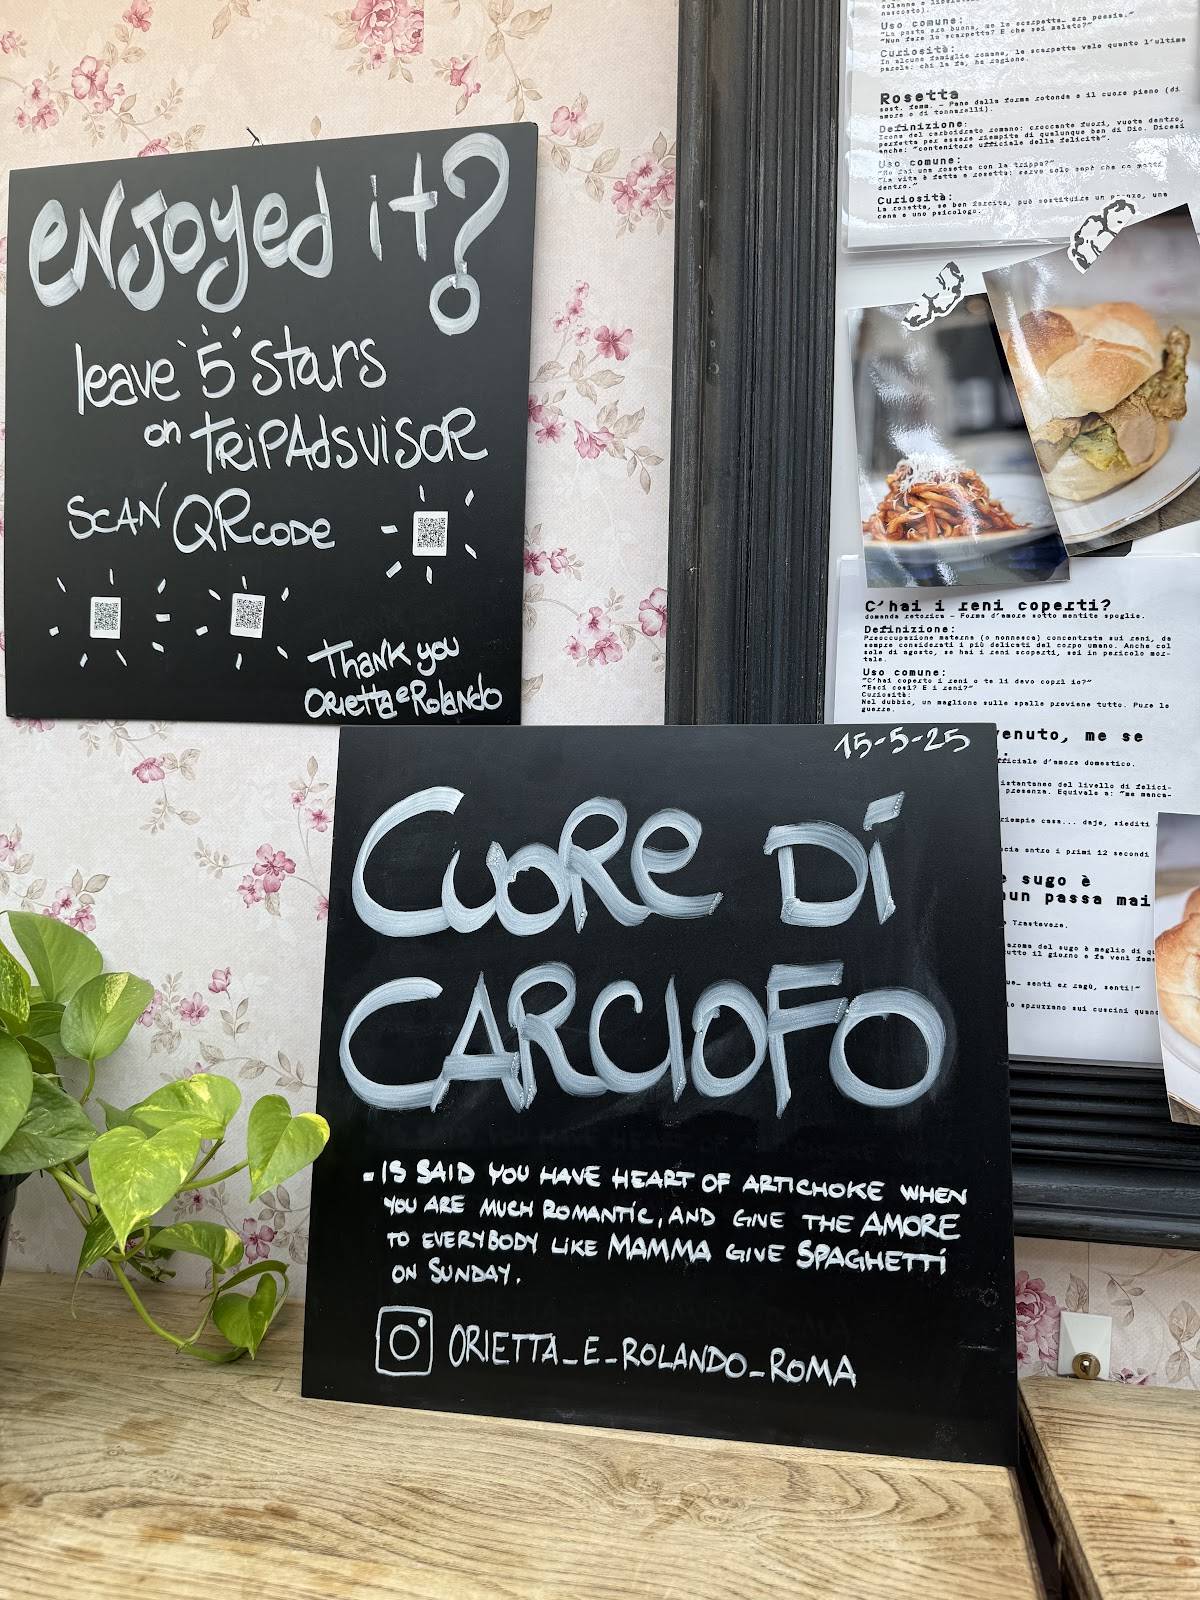 enjoyed it?
leave "5" stars
on TRiPAdSVISOR
SCAN QR code
Thank you
Orietta e Rolando
15-5-25
CUORE Di
CARCIOFO
- IS SAID YOU HAVE HEART OF ARTICHOKE WHEN
YOU ARE MUCH ROMANTIC, AND GIVE THE AMORE
TO EVERYBODY LIKE MAMMA GIVE SPAGHETTI
ON SUNDAY.
ORIETTA_E_ROLANDO_ROMA
nascosto).
Uso comune:
"La pasta era buona, me la scarpetta era poesia."
"Nun fare la scarpetta? E che sei malato?"
Curiosità:
In alcune famiglie romane, la scarpetta vale quanto l'ultima
parola: chi la fa, ha ragione.
Rosetta
sost. femm. – Pane dalla forma rotonda e il cuore pieno (di
amore o di tonnarelli).
Definizione:
Icona del carboidrato romano: croccante fuori, vuota dentro,
perfetta per essere riempita di qualunque ben di Dio. Dicesi
anche: "contenitore ufficiale della felicità".
Uso comune:
"Me fai una rosetta con la trippa?"
"La vita è fatta a rosetta: serve solo sapè che ce metti
dentro."
Curiosità:
La rosetta, se ben farcita, può sostituire un pranzo, una
cena e uno psicologo.
C'hai i reni coperti?
domanda retorica – Forma d'amore sotto mentite spoglie.
Definizione:
Preoccupazione materna (o nonnesca) concentrata sui reni, da
sempre considerati i più delicati del corpo umano. Anche col
sole di agosto, se hai i reni scoperti, sei in pericolo mor-
tale.
Uso comune:
"C'hai coperto i reni o te li devo coprì io?"
"Esci così? E i reni?"
Curiosità:
Nel dubbio, un maglione sulle spalle previene tutto. Pure le
guerre.
venuto, me se
fficiale d'amore domestico.
istantaneo del livello di felici-
presenza. Equivale a: "me manca-
riempie casa... daje, siediti
scia entro i primi 12 secondi
e sugo è
nun passa mai
e Trastevere.
aroma del sugo è meglio di qu
utto il giorno e fa venì fame
ue… senti er ragù, senti!"
lo spruzzano sui cuscini quand